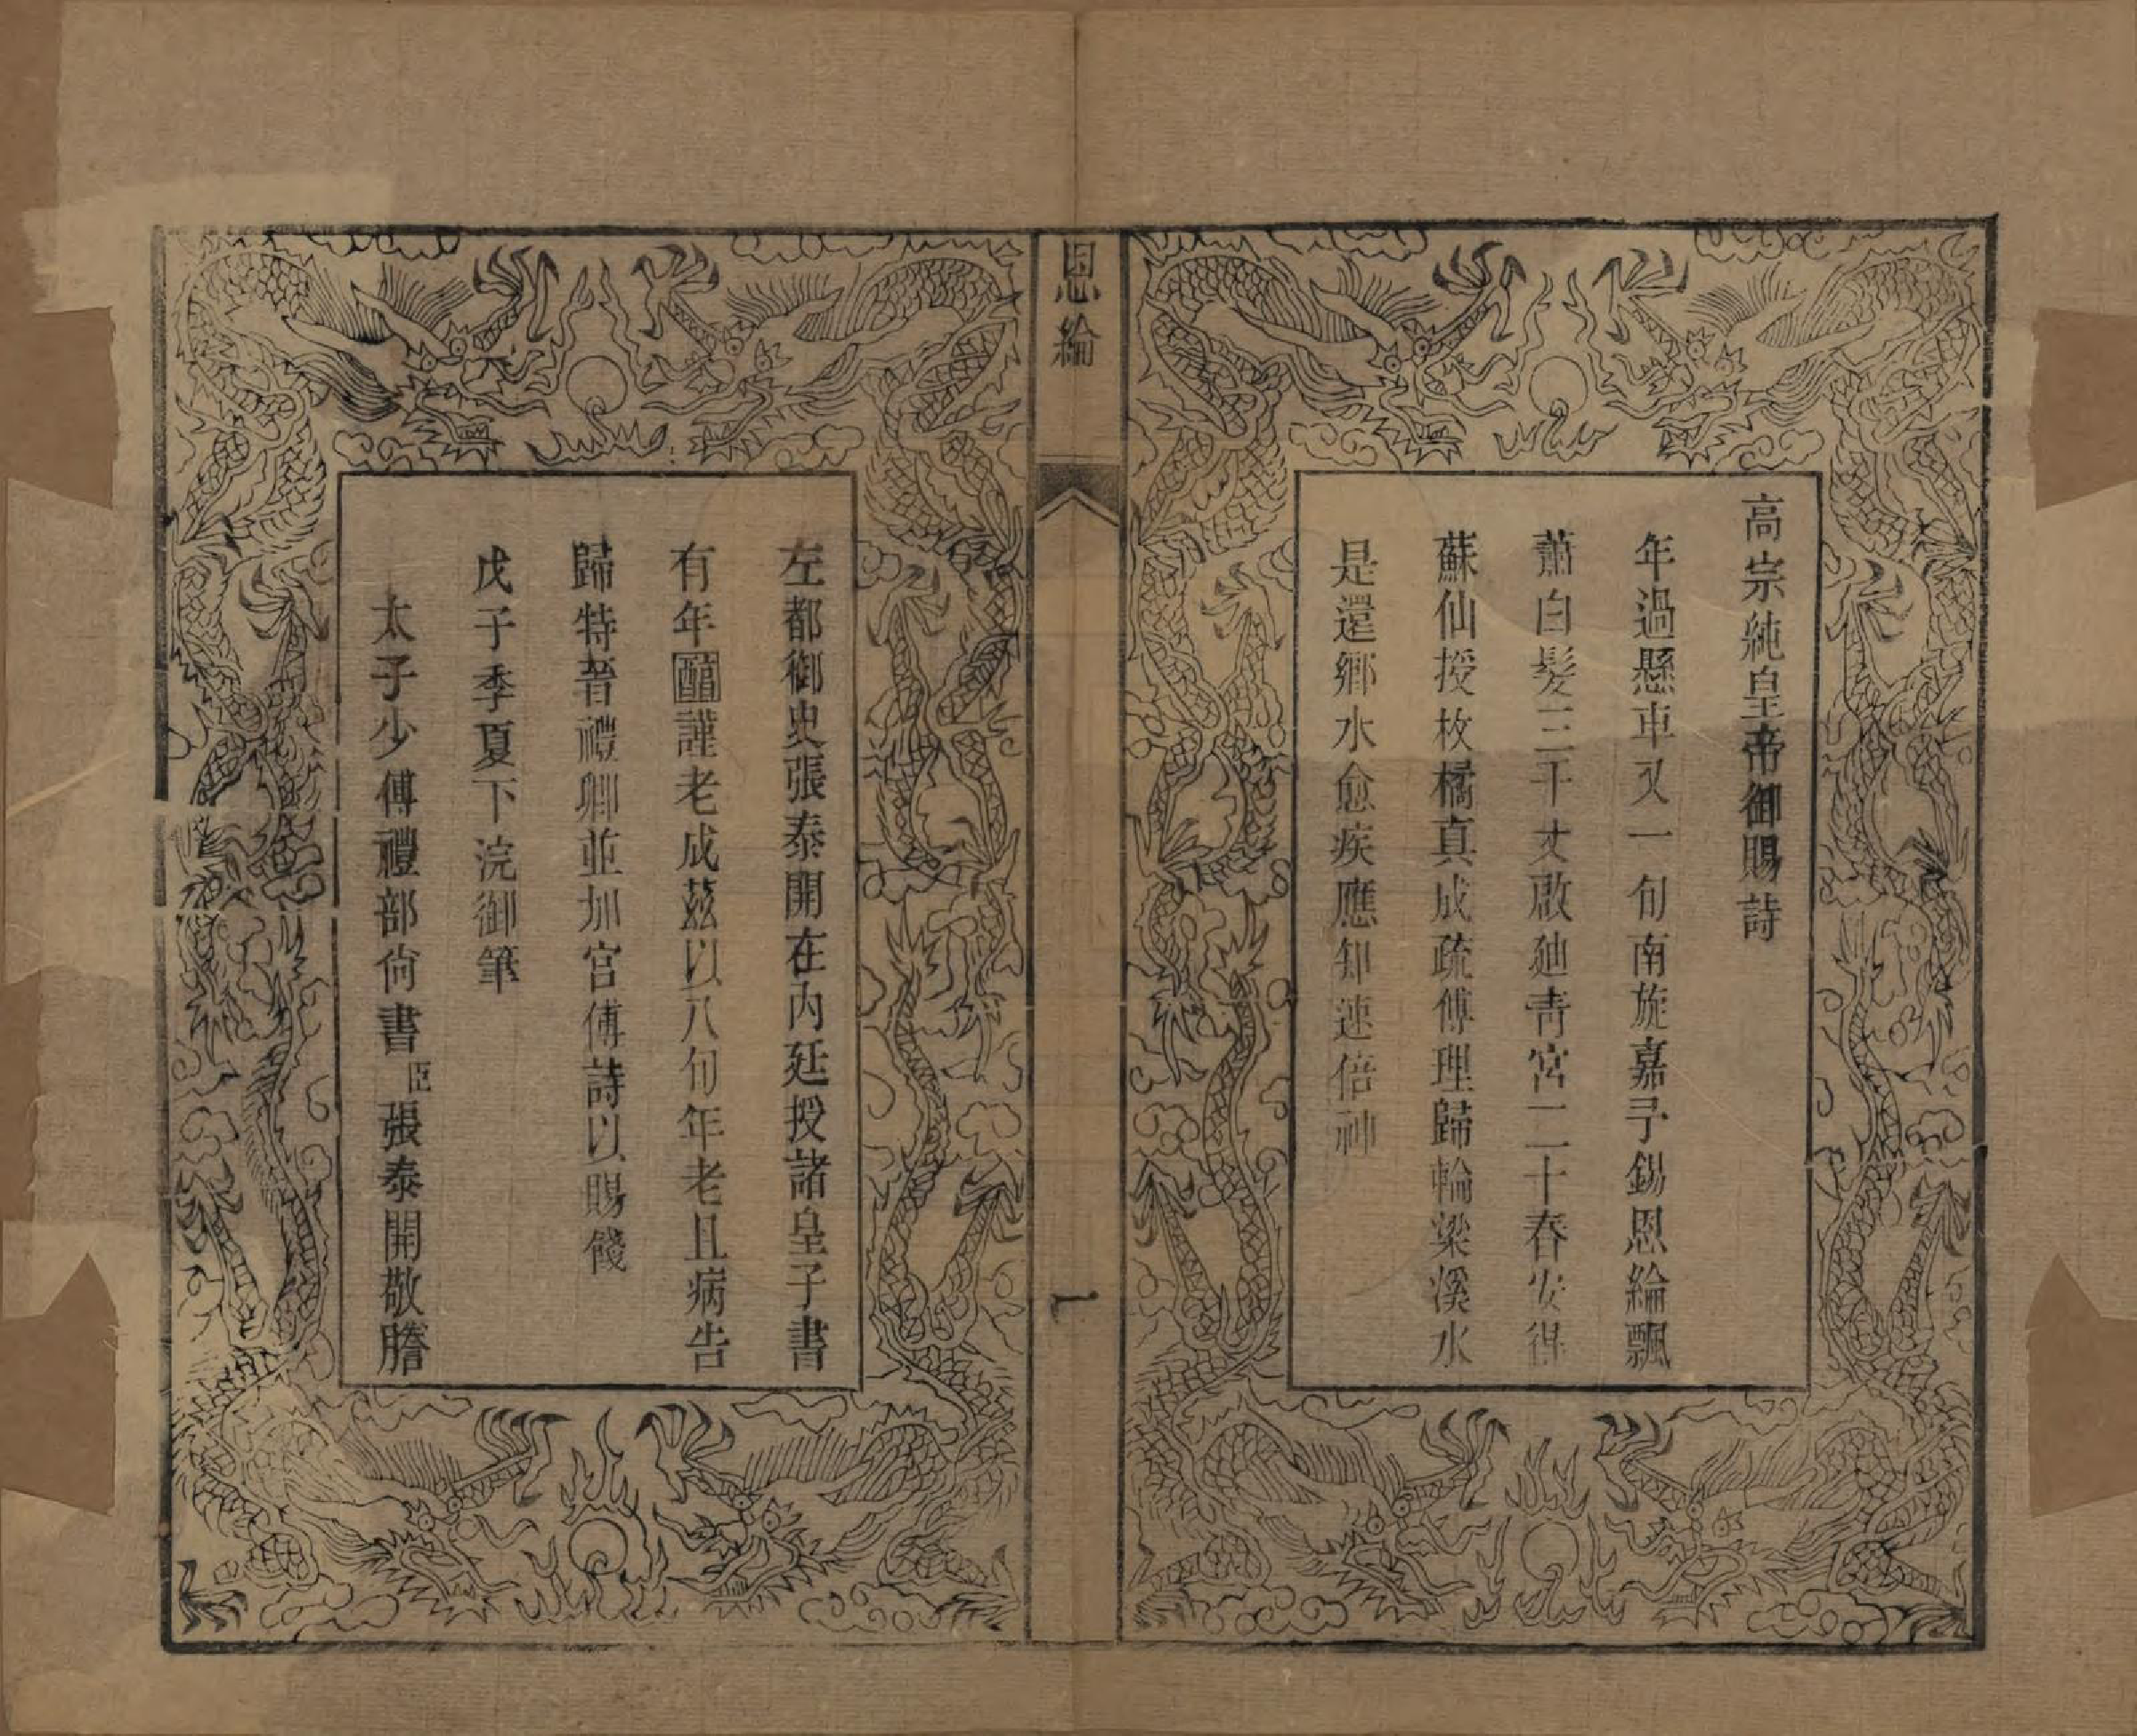 高宗純皇帝御賜詩
年過懸車又一旬南旋嘉予錫恩綸飄
蕭白髮三千丈啟迪青宮二十春安得
蘇仙授枚橘真成疏傅理歸輪梁溪水
是還鄉水愈疾應知速倍神
恩綸
一
左都御史張泰開在內廷授諸皇子書
有年醕謹老成茲以八旬年老且病告
歸特晉禮卿並加宮傅詩以賜餞
戊子季夏下浣御筆
太子少傅禮部尚書臣張泰開敬謄